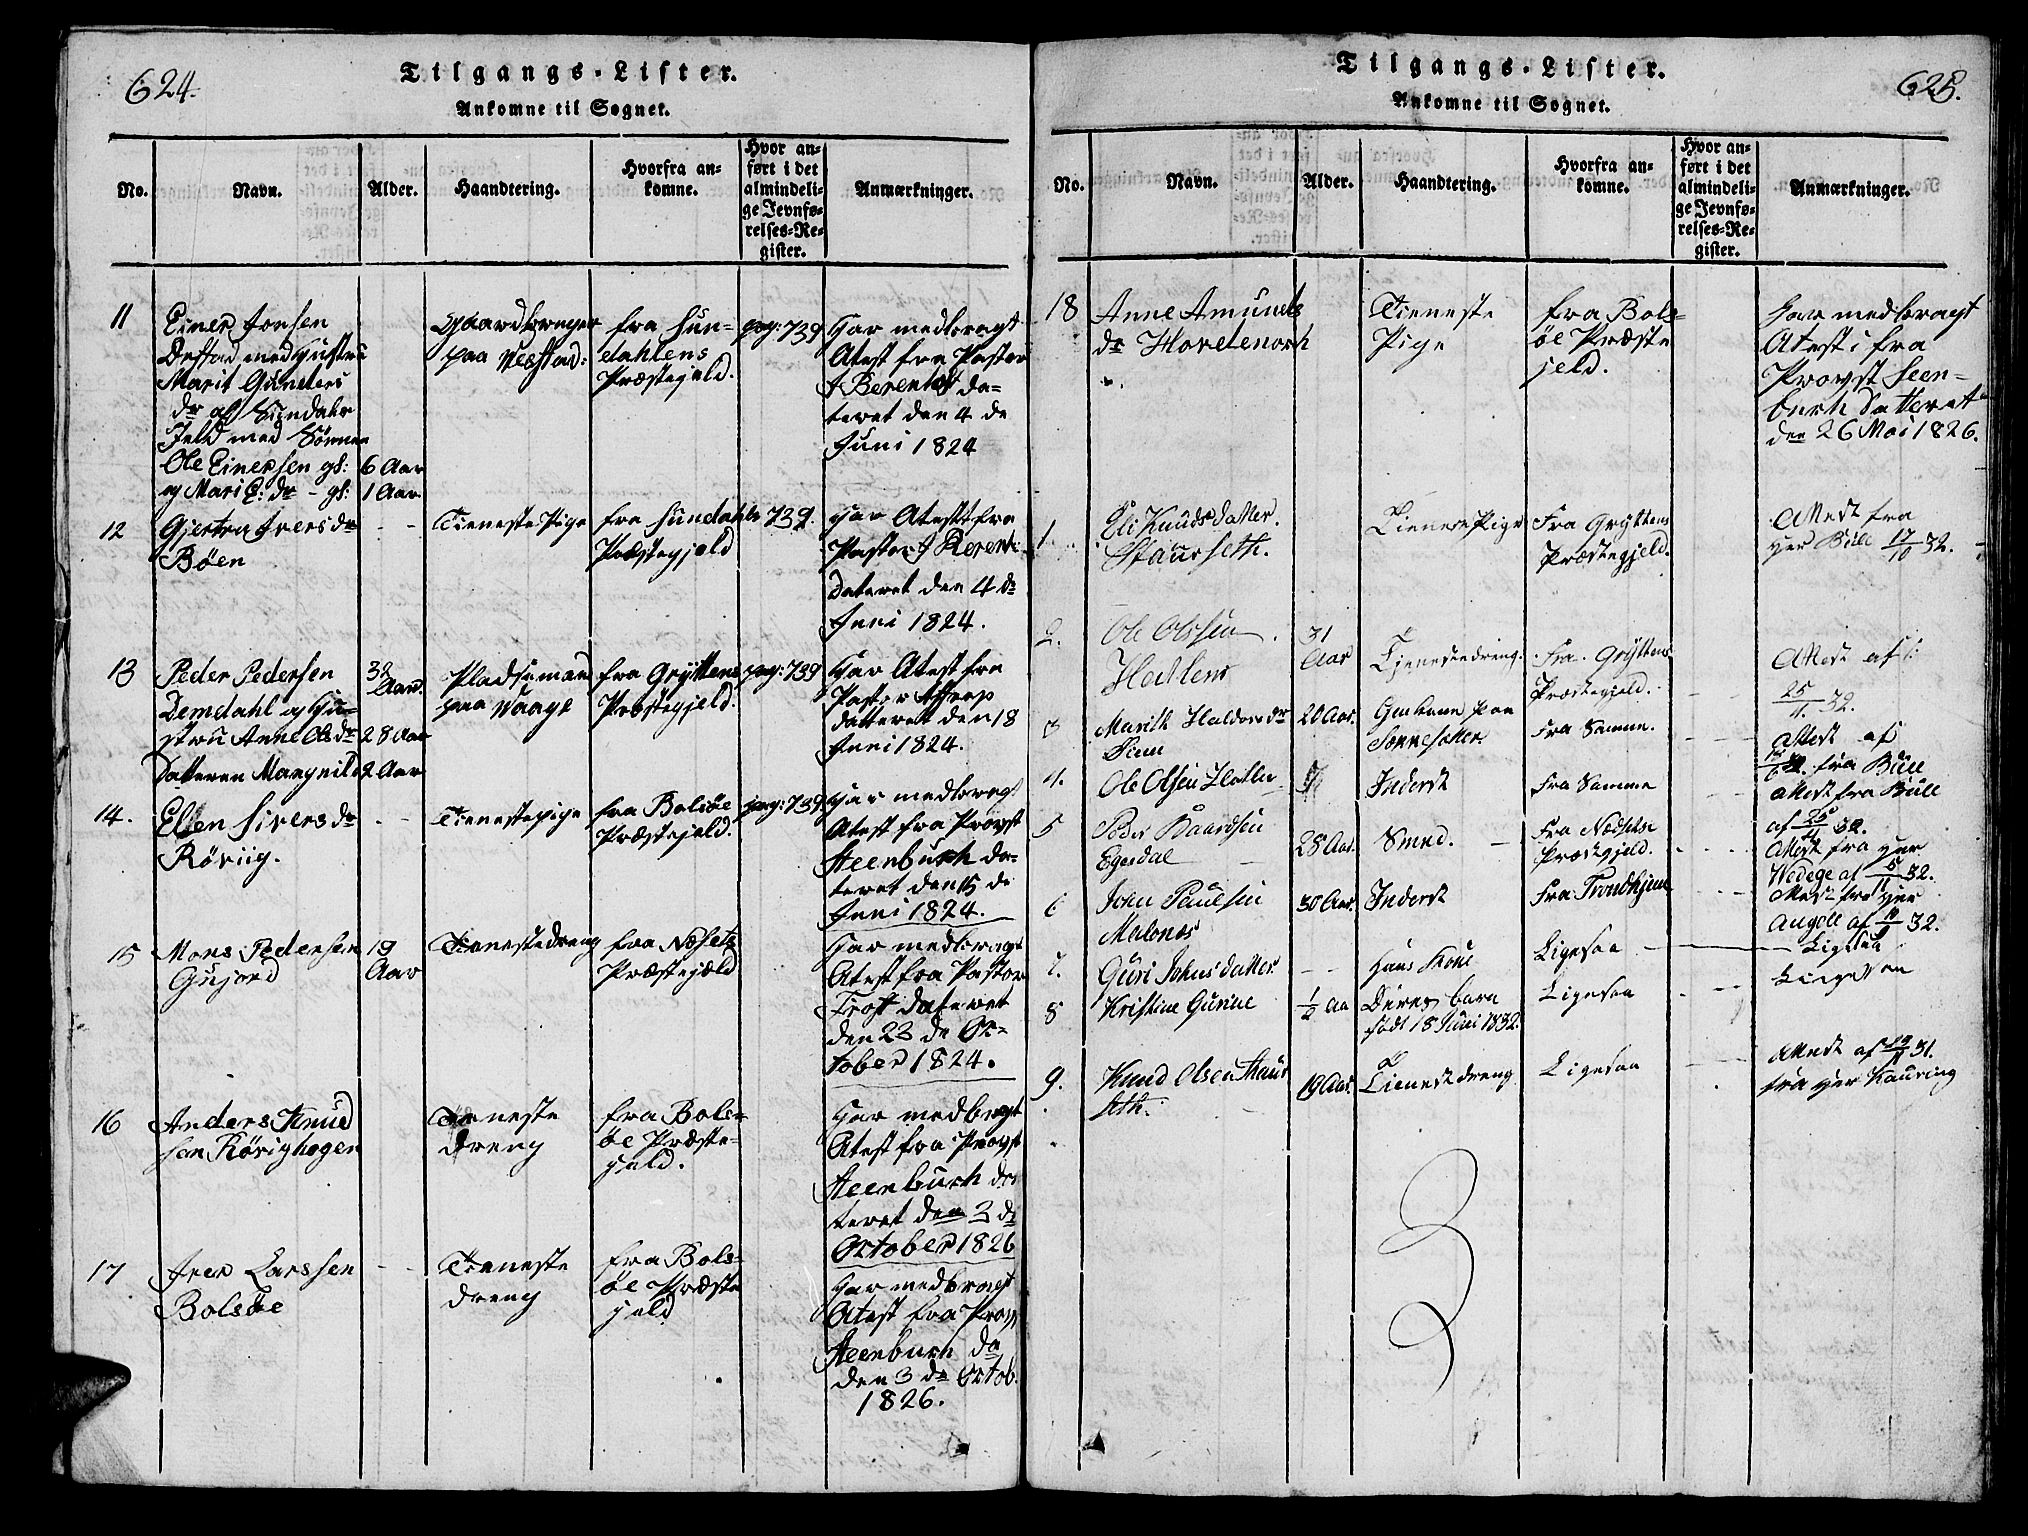 624.
Tilgangs-Lister.
Ankomne til Sognet.
No.
Navn.
Alder.
Haandtering.
Hvorfra an-
komne.
Hvor an-
ført i det
almindeli-
ge Jevnfø-
relses-Re-
gister.
Anmærkninger.
11
Einer Jonsen
med Hustru
Marit Gunders
dr af Sundals
Jeld med Sønnen
Ole Einersen gl: 6 Aar
og Mari E: dr - gl: 1 Aar
Gaardbruger
paa
fra Sun-
dahlens
Præstegjeld.
pag: 739
Har medbragt
Atest fra Pastor
J Berent da-
teret den 4 de
Juni 1824
12
Gjertru Ivers dr
Böen
- -
Tieneste Pige
fra Sundahls
Præstegjeld
739.
Har Atest fra
Pastor J Berent
Dateret den 4 de
Juni 1824.
13
Peder Pedersen
Demdahl og Hu-
stru Anne Ols dr
Datteren Magnild
32
Aar.
28 Aar
2 Aar
Pladsemand
paa Vaage
fra Grÿttens
Præstegjeld.
pag: 739
Har Atest fra
Pastor
datteret den 18
Juni 1824.
14.
Ellen Sivers dr
Rörvig.
- -
Tienestepige
fra Bolsöe
Præstejeld.
pag: 739.
Har medbragt
Atest fra Provst
Steenbuch da-
teret den 15 de
Juni 1824.
15
Mons Pedersen
Gujord
19
Aar
Tienestedreng
fra Næsets
Præstejeld
Har medbragt
Atest fra Pastor
Frost dateret
den 23 de Oc-
tober 1824.
16
Anders Knud
sen Rörvighagen
Tieneste
dreng
fra Bols-
öe Præste-
jeld.
Har medbragt
Atest fra Provst
Steenbuch da
teret den 3 de
October 1826
17
Iver Larssen
Bolsöe
- -
Tieneste
dreng
fra Bols-
öe Præste
jeld
Har medbragt
Atest fra Provst
Steenbuch da
den 3 de Octob.
1826.
Tilgangs-Lister.
625.
Ankomne til Sognet.
No.
Navn.
Alder.
Haandtering.
Hvorfra an-
komne.
Hvor an-
ført i det
almindeli-
ge Jevnfø-
relses-Re-
gister.
Anmærkninger.
18
Anne Amunds
dr
Tieneste
Pige
fra Bols-
öe Præste
jeld.
Har medbragt
Atest i fra
Provst Steen-
buch Datteret
den 26 Mai 1826.
1.
Eli Knuds datter
Staurseth.
Tieneste Pige
Fra Grÿttens
Præstegjeld.
Attest fra
Her Bull 17/10 32.
2.
Ole Olssen
31
Aar
Tjenestedreng.
Fra Grÿttens
Præstegjeld.
Attest af
25/11. 32.
3
Marith Haldors dr
20 Aar.
paa
Fra Samme.
Attest af
fra Bull
4.
Ole Olsen
Inderst
Fra Samme
Attest fra Bull
af 25/11 32.
5
Peder Baardsen
28 Aar.
Smed.
Fra Nædsets
Præstegjeld.
Attest fra Her
Wedege af 5/11 32.
6
John Paulsen
Malones
30 Aar.
Inderst
Fra Trondhjem
Attest fra Her
Angell af 32.
7.
Guri Johnsdatter
- -
Hans Kone
Ligesaa
Ligesaa
8
Kristine Gurine
1/2 Aa
Deres barn
född 18 Juni 1832.
Ligesaa
Ligesaa
9.
Knud Olsen Staur
seth.
19 Aar.
Tienestdreng
Ligesaa
Attest af 31.
fra Her Kauring